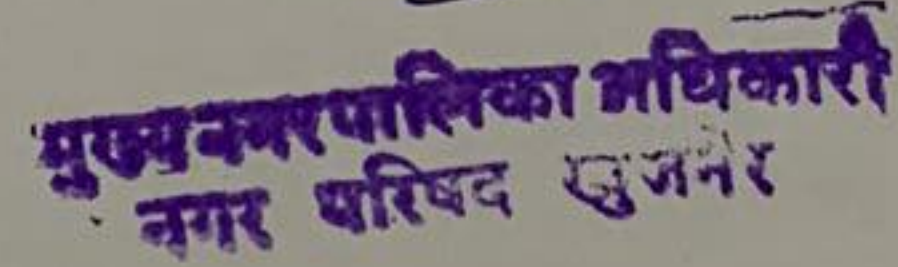 मुख्य नगरपालिका अधिकारी
नगर परिषद खुजनेर